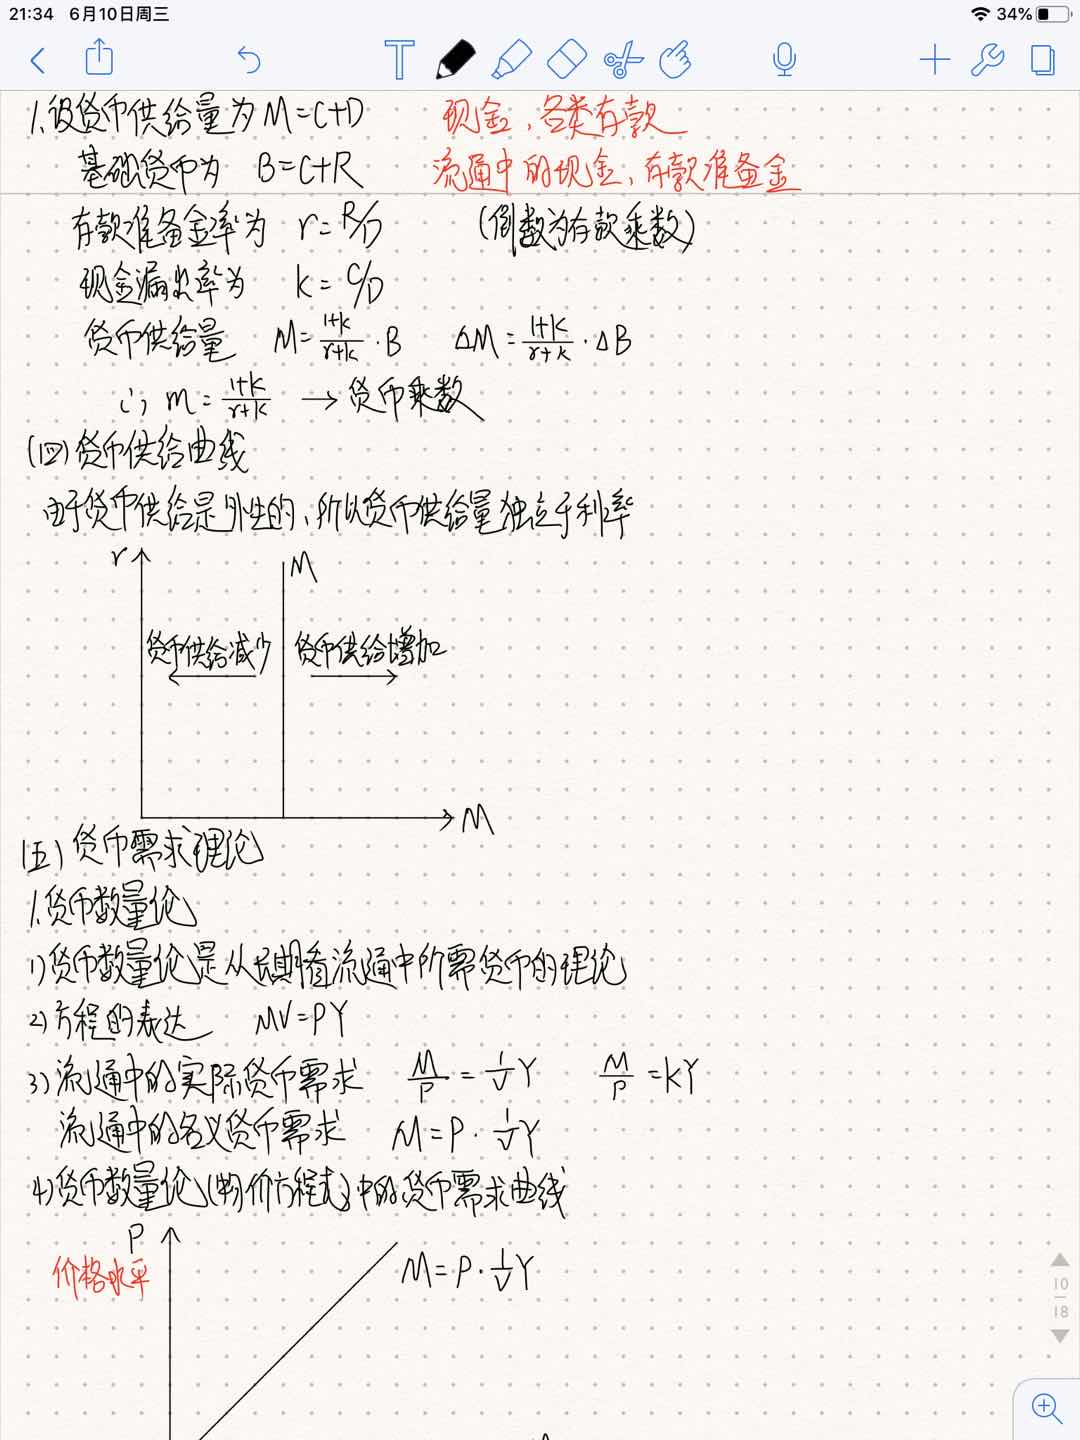 21:34 6月10日周三 34%
1.设货币供给量为 M=C+D 现金、各类存款
基础货币为 B=C+R 流通中的现金、存款准备金
存款准备金率为 r=R/D (倒数为存款乘数)
现金漏出率为 k=C/D
货币供给量 M=(1+k)/(r+k)·B ΔM=(1+k)/(r+k)·ΔB
∴ m=(1+k)/(r+k) → 货币乘数
(四)货币供给曲线
由于货币供给是外生的、所以货币供给量独立于利率
r M
货币供给减少 货币供给增加
M
(五)货币需求理论
1.货币数量论
1)货币数量论是从长期看流通中所需货币的理论
2)方程的表达 MV=PY
3)流通中的实际货币需求 M/P=1/V Y M/P=kY
流通中的名义货币需求 M=P·1/V Y
4)货币数量论(物价方程式)中的货币需求曲线
P
价格水平 M=P·1/V Y
10
18